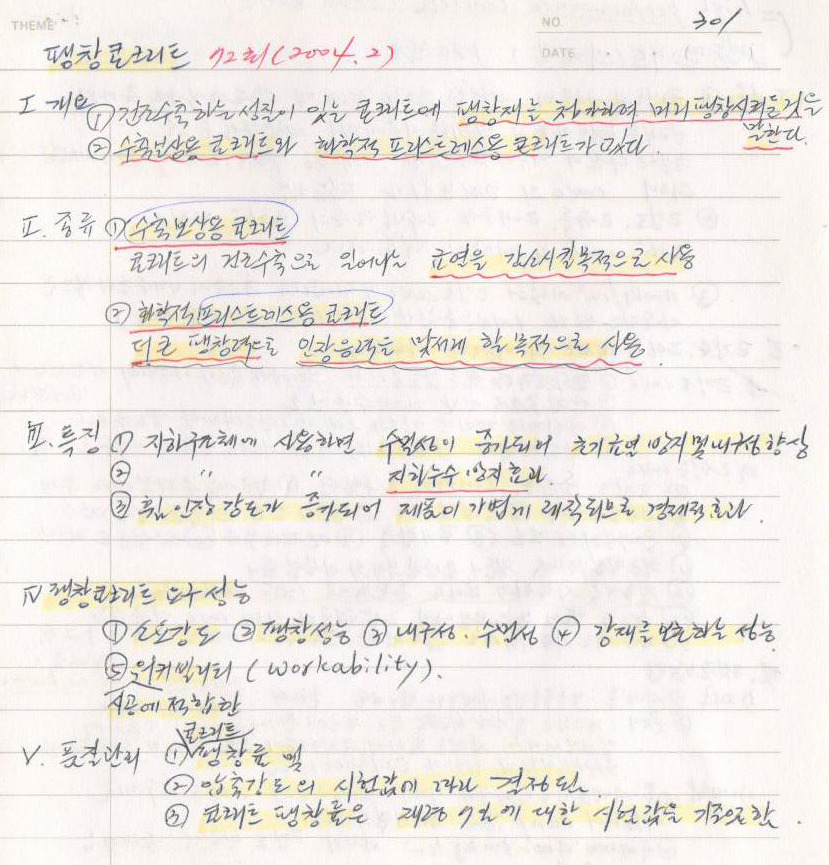 THEME
NO. 301
DATE
팽창콘크리트 72회(2004.2)
I. 개요 ① 건조수축하는 성질이 있는 콘크리트에 팽창재를 첨가하여 미리 팽창시키는 것을
말한다.
② 수축보상용 콘크리트와 화학적 프리스트레스용 콘크리트가 있다.
II. 종류 ① 수축보상용 콘크리트
콘크리트의 건조수축으로 일어나는 균열을 감소시킬 목적으로 사용
② 화학적 프리스트레스용 콘크리트
더 큰 팽창력으로 인장응력을 맞서게 할 목적으로 사용.
III. 특징 ① 지하구조체에 사용하면 수밀성이 증가되어 초기균열 방지 및 내구성 향상
② 〃 〃 지하누수 방지 효과.
③ 휨, 인장 강도가 증가되어 제품이 가볍게 제작되므로 경제적 효과.
IV. 팽창콘크리트 요구성능
① 소요강도 ② 팽창성능 ③ 내구성. 수밀성 ④ 강재를 보호하는 성능
⑤ 워커빌리티 (workability).
시공에 적합한
콘크리트
V. 품질관리 ① 팽창률 및
② 압축강도의 시험값에 따라 결정된.
③ 콘크리트 팽창률은 재령 7일에 대한 시험값을 기준으로 한.